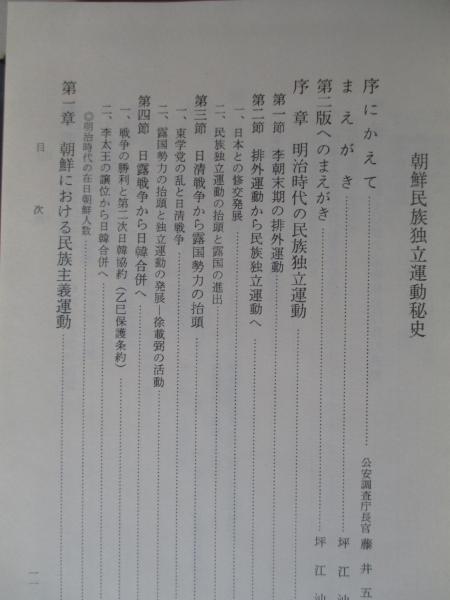 朝鮮民族独立運動秘史
序にかえて 公安調査庁長官 藤井五
まえがき 坪江汕
第二版へのまえがき 坪江汕
序章 明治時代の民族独立運動
第一節 李朝末期の排外運動
第二節 排外運動から民族独立運動へ
一、日本との修交発展
二、民族独立運動の抬頭と露国の進出
第三節 日清戦争から露国勢力の抬頭
一、東学党の乱と日清戦争
二、露国勢力の抬頭と独立運動の発展―徐載弼の活動
第四節 日露戦争から日韓合併へ
一、戦争の勝利と第二次日韓協約(乙巳保護条約)
二、李太王の譲位から日韓合併へ
◎明治時代の在日朝鮮人数
第一章 朝鮮における民族主義運動
目次 一一